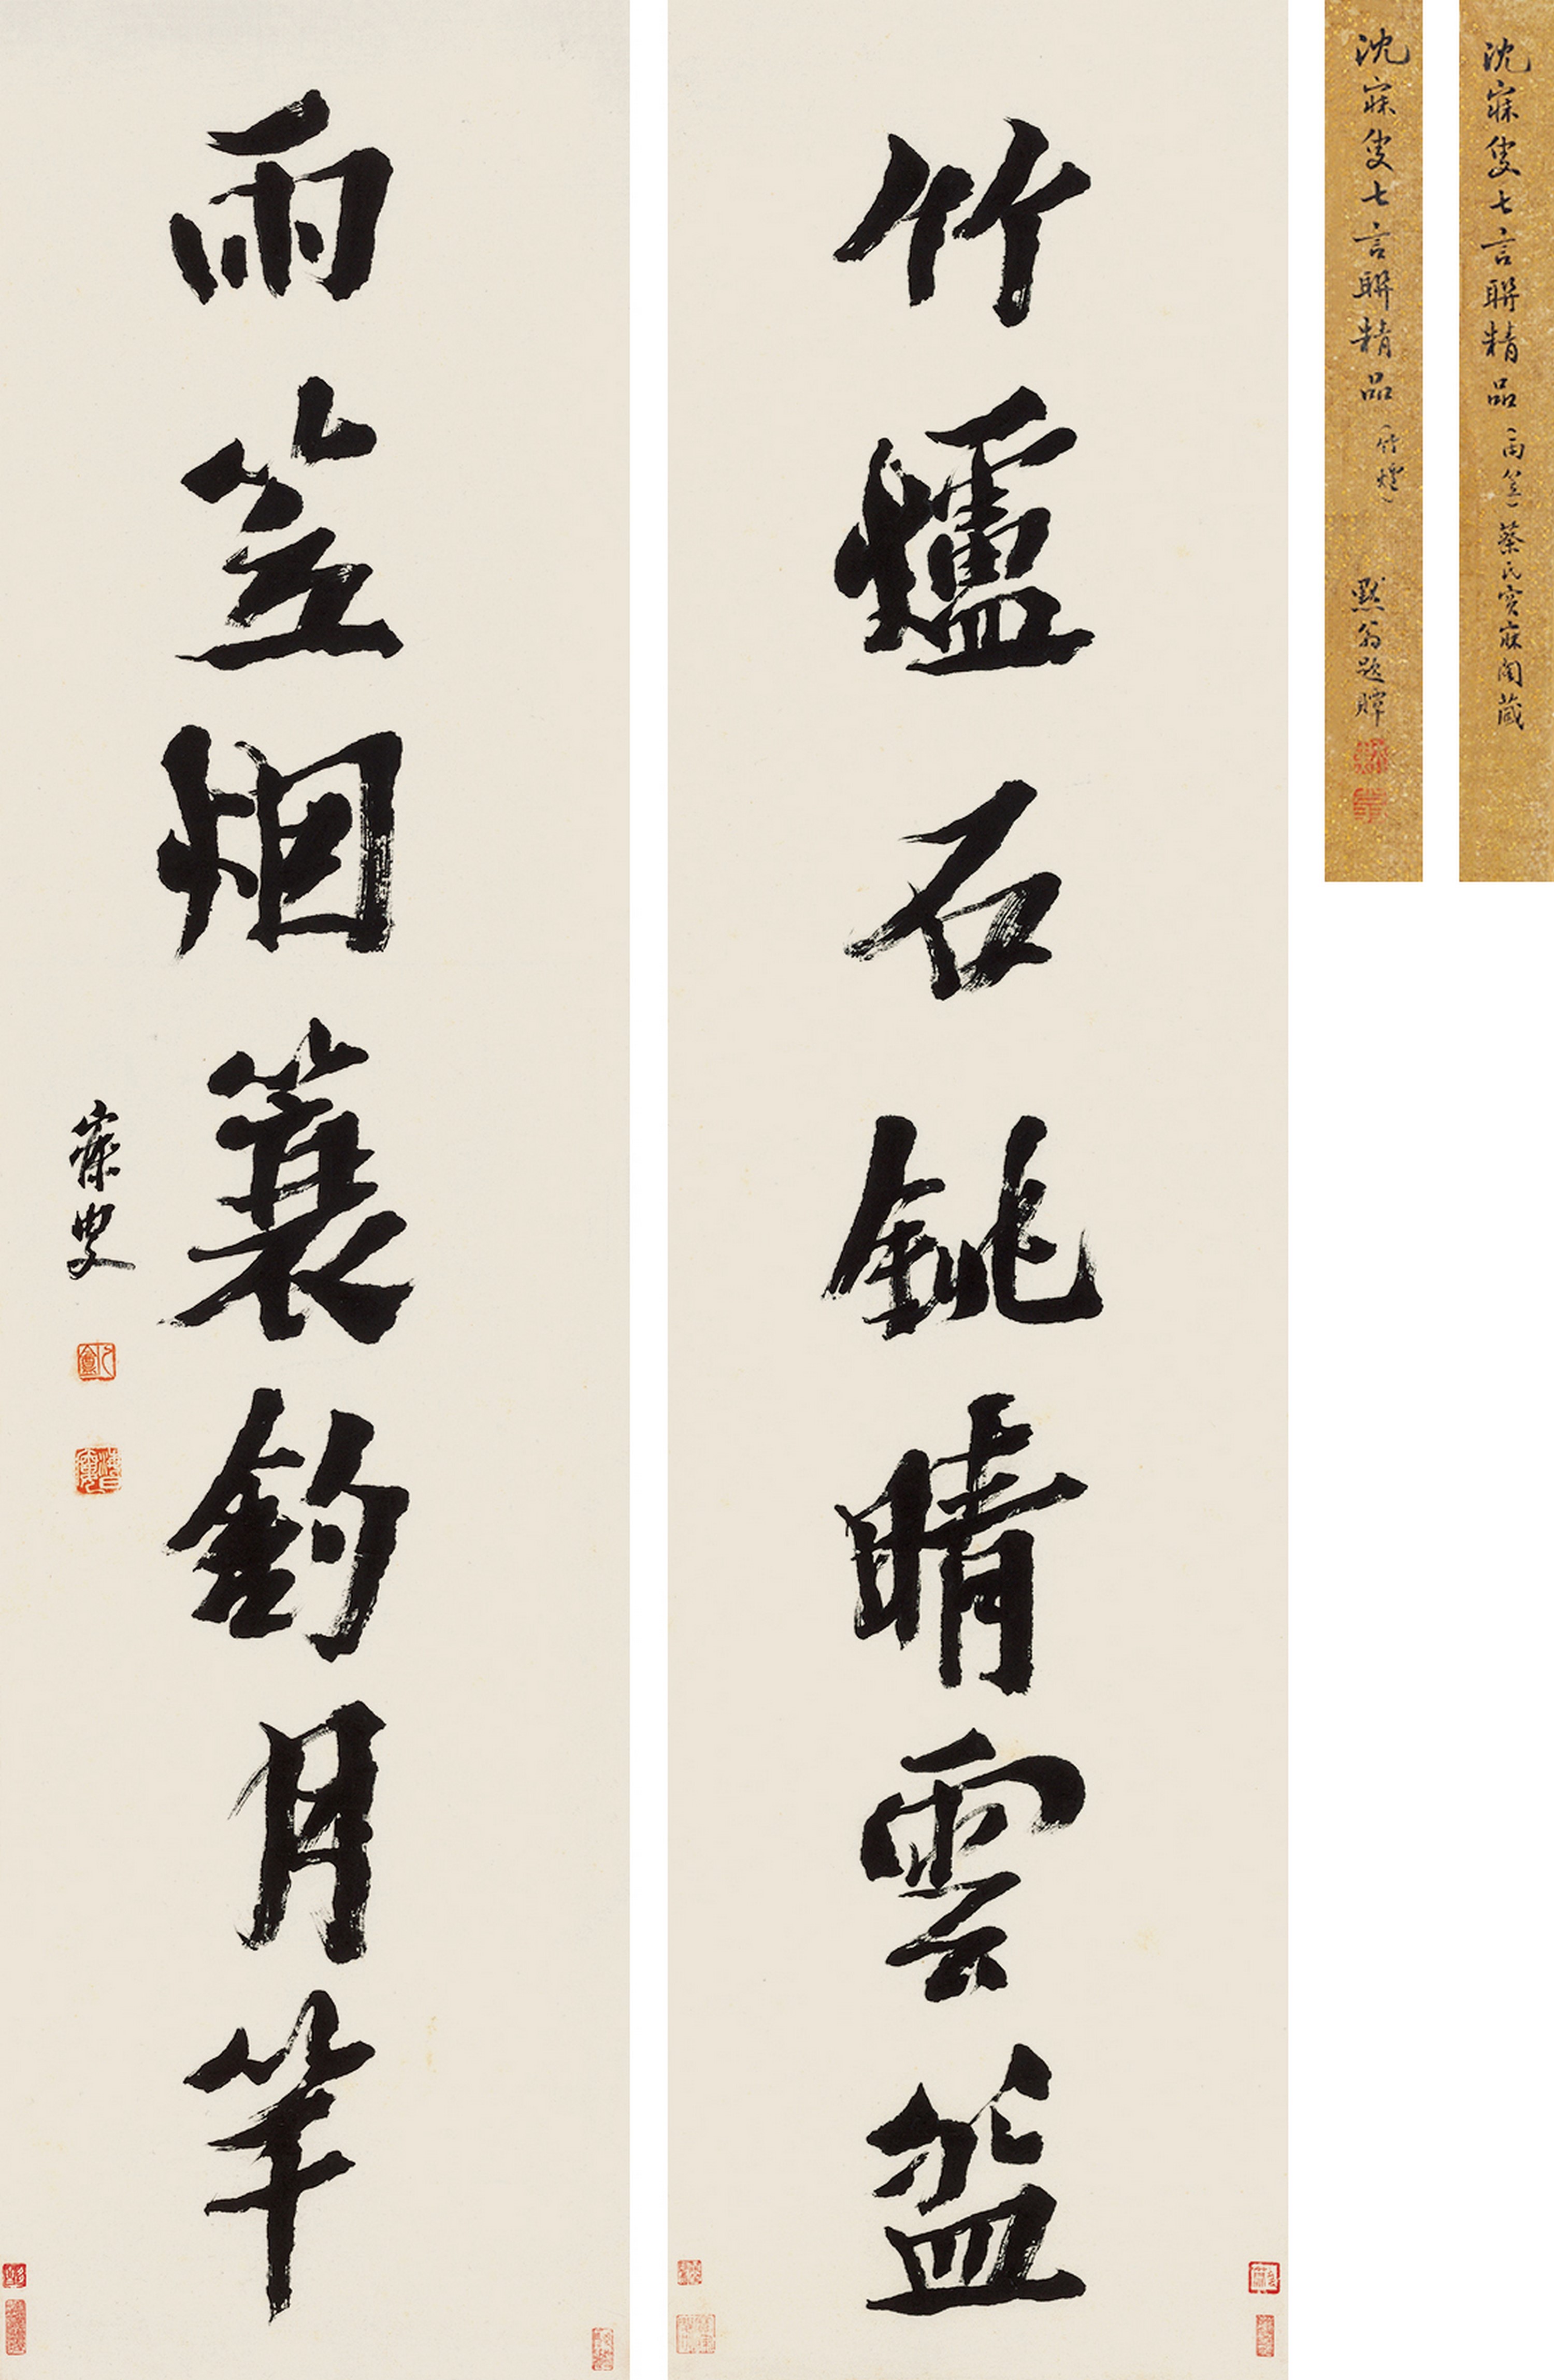 沈寐叟七言聯精品(雨笠)蔡氏宝寐閣藏
沈寐叟七言聯精品(竹爐) 默翁題贉
竹爐石銚晴雲盌
雨笠烟簑釣月竿
寐叟